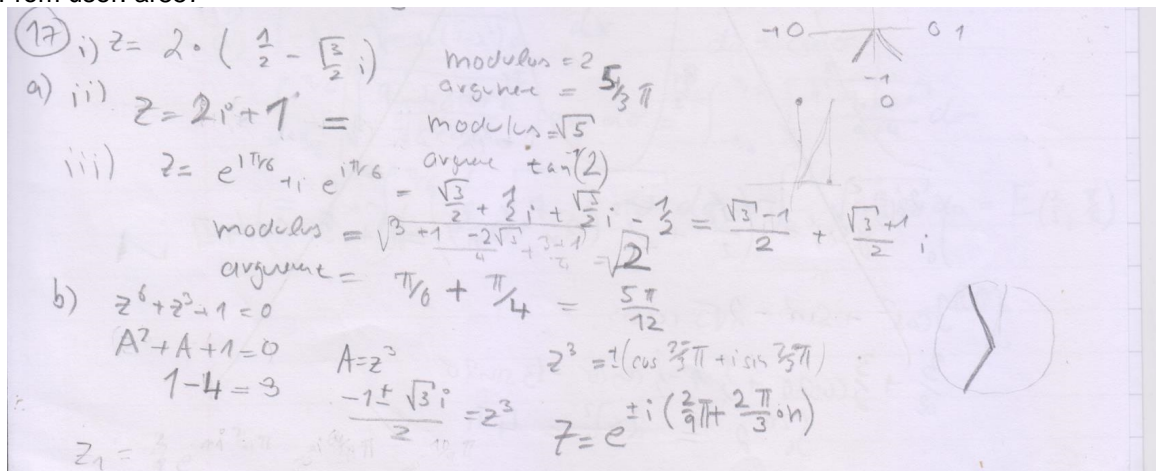 17 i) z = 2 · ( 1/2 - √3/2 i)
modulus = 2
argument = 5/3 π
-10 0 1
-1
0
a) ii) z = 2i + 1 =
modulus = √5
argume tan⁻¹(2)
iii) z = e^(iπ/6) + i e^(iπ/6) = √3/2 + 1/2 i + √3/2 i - 1/2 = (√3 - 1)/2 + (√3 + 1)/2 i
modulus = √((3 + 1 - 2√3)/4 + = √2
argument = π/6 + π/4 = 5π/12
b) z⁶ + z³ + 1 = 0
A² + A + 1 = 0 A = z³
z³ = ±(cos 2/3 π + i sin 2/3 π)
1 - 4 = 3
(-1 ± √3 i)/2 = z³
z = e^(±i (2/9 π + 2π/3 · n))
z₁ =